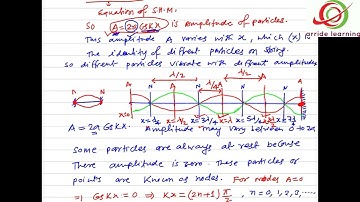 Equation of S.H.M.
arride learning
So A = 2a Cos Kx is Amplitude of particles.
This amplitude A varies with x, which (x) is
The identity of different particles on string.
So different particles vibrate with different amplitudes
λ/2 λ/4 λ/2
A N A N A N A N A N A
x=0 x=λ/4 x=λ/2 x=3λ/4 x=λ x=5λ/4
A = 2a Cos Kx. Amplitude may vary between 0 to 2a
Some particles are always at rest because
There amplitude is zero. These particles or
points are known as nodes. For nodes A=0
⇒ Cos Kx = 0 ⇒ Kx = (2n+1) π/2, n = 0, 1, 2, 3, ....